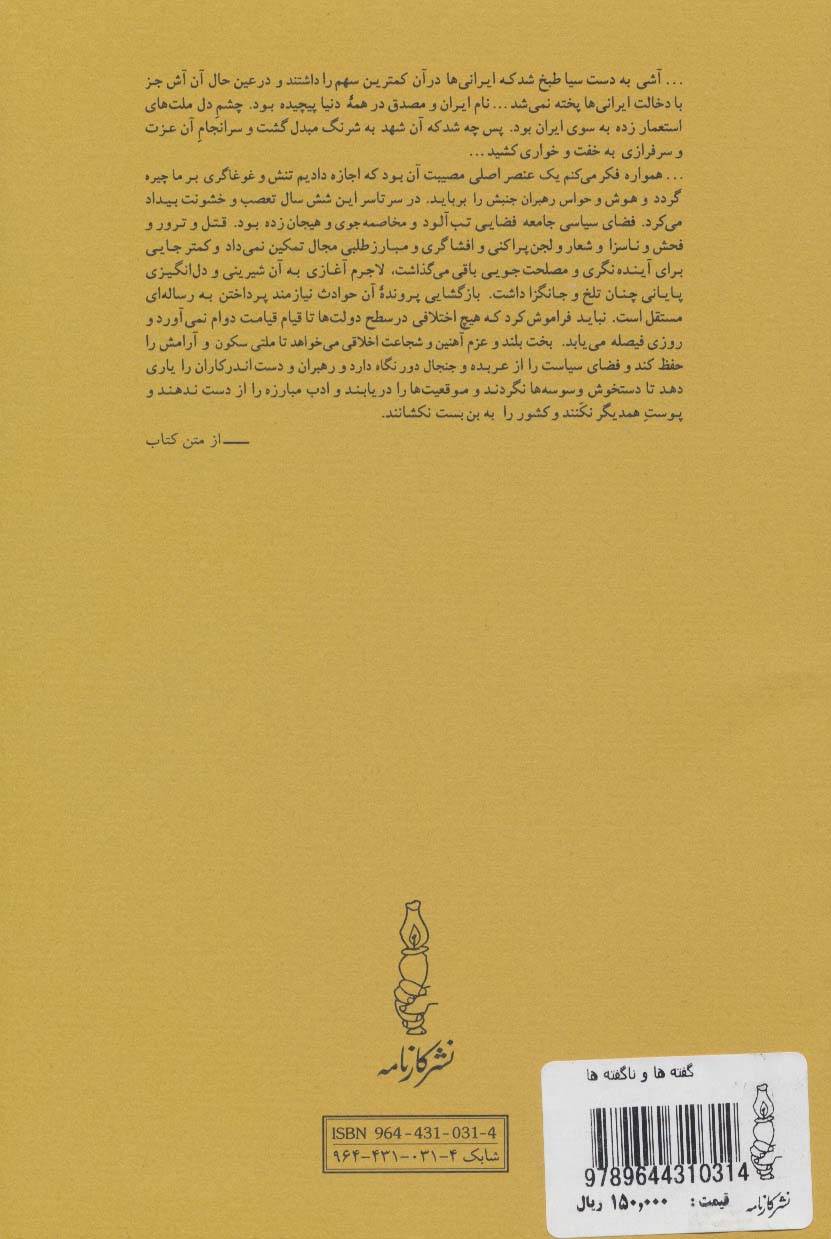 ... آشی به دست سیا طبخ شد که ایرانی‌ها در آن کمترین سهم را داشتند و در عین حال آن آش جز
با دخالت ایرانی‌ها پخته نمی‌شد ... نام ایران و مصدق در همهٔ دنیا پیچیده بود. چشمِ دل ملت‌های
استعمار زده به سوی ایران بود. پس چه شد که آن شهد به شرنگ مبدل گشت و سرانجامِ آن عزت
و سرفرازی به خفت و خواری کشید ...
... همواره فکر می‌کنم یک عنصر اصلی مصیبت آن بود که اجازه دادیم تنش و غوغاگری بر ما چیره
گردد و هوش و حواس رهبران جنبش را برباید. در سرتاسر این شش سال تعصب و خشونت بیداد
می‌کرد. فضای سیاسی جامعه فضایی تب‌آلود و مخاصمه‌جوی و هیجان زده بود. قتل و ترور و
فحش و ناسزا و شعار و لجن‌پراکنی و افشاگری و مبارزطلبی مجال تمکین نمی‌داد و کمتر جایی
برای آینده‌نگری و مصلحت‌جویی باقی می‌گذاشت، لاجرم آغازی به آن شیرینی و دل‌انگیزی
پایانی چنان تلخ و جانگزا داشت. بازگشایی پروندهٔ آن حوادث نیازمند پرداختن به رساله‌ای
مستقل است. نباید فراموش کرد که هیچ اختلافی در سطح دولت‌ها تا قیام قیامت دوام نمی‌آورد و
روزی فیصله می‌یابد. بخت بلند و عزم آهنین و شجاعت اخلاقی می‌خواهد تا ملتی سکون و آرامش را
حفظ کند و فضای سیاست را از عربده و جنجال دور نگاه دارد و رهبران و دست‌اندرکاران را یاری
دهد تا دستخوش وسوسه‌ها نگردند و موقعیت‌ها را دریابند و ادب مبارزه را از دست ندهند و
پوستِ همدیگر نکَنند و کشور را به بن‌بست نکشانند.
ــــ از متن کتاب
نشر کارنامه
ISBN 964-431-031-4
شابک ۹۶۴-۴۳۱-۰۳۱-۴
گفته ها و ناگفته ها
9789644310314
قیمت: ۱۵۰,۰۰۰ ریال
نشر کارنامه